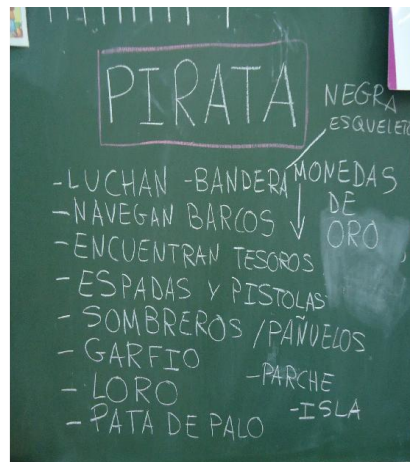 PIRATA
NEGRA
ESQUELETO
-LUCHAN -BANDERA MONEDAS
DE
ORO
-NAVEGAN BARCOS
-ENCUENTRAN TESOROS
-ESPADAS Y PISTOLAS
-SOMBREROS /PAÑUELOS
-GARFIO
-PARCHE
-LORO
-ISLA
-PATA DE PALO